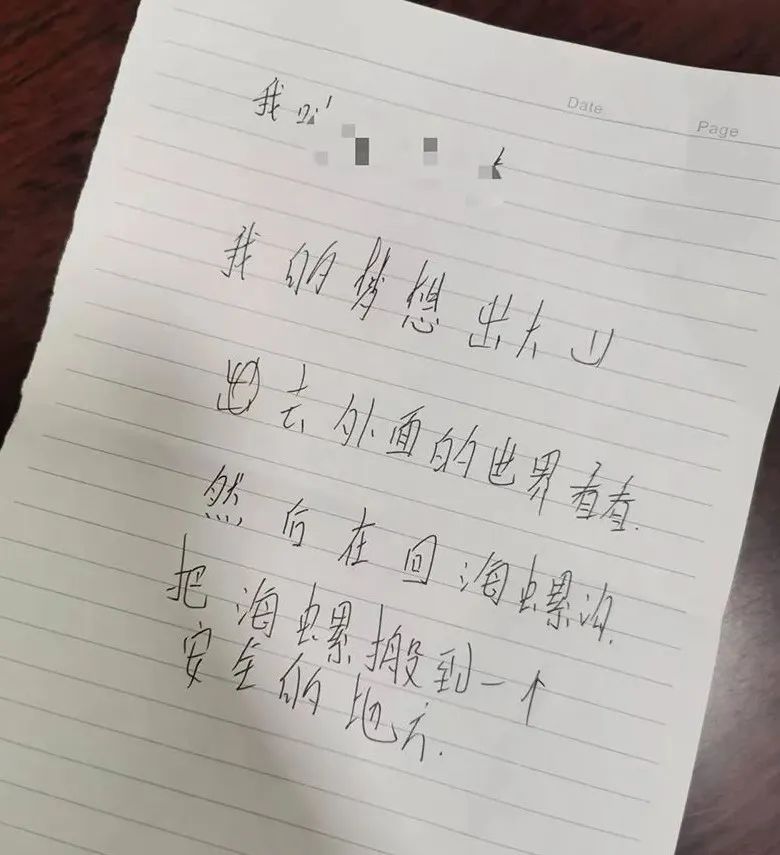 Date
Page
我叫
我的梦想出大山
出去外面的世界看看.
然后在回海螺沟.
把海螺搬到一个
安全的地方.